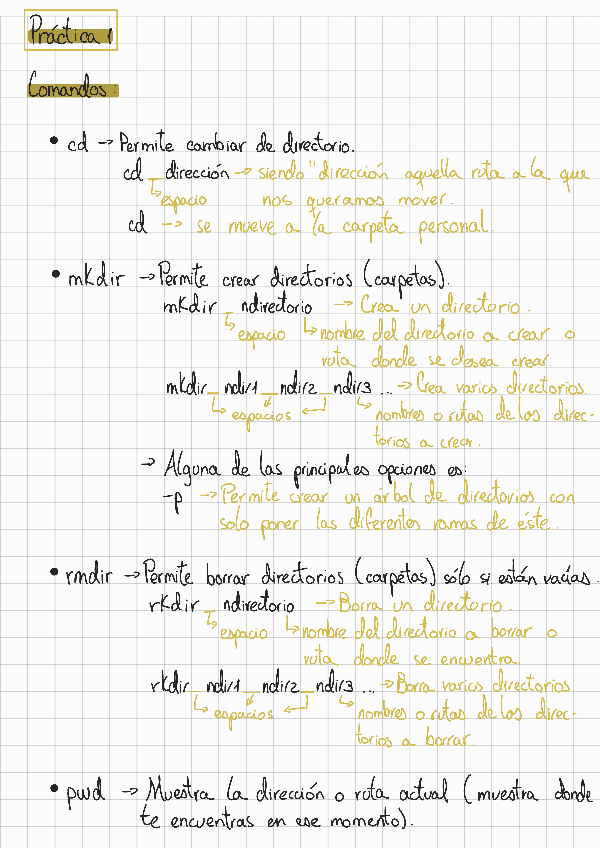 Práctica 1
Comandos:
• cd → Permite cambiar de directorio.
cd _ dirección → siendo "dirección aquella ruta a la que
↳ espacio nos queramos mover.
cd --> se mueve a la carpeta personal.
• mkdir → Permite crear directorios (carpetas).
mkdir _ ndirectorio → Crea un directorio.
↳ espacio ↳ nombre del directorio a crear o
ruta donde se desea crear.
mkdir _ ndir1 _ ndir2 _ ndir3 ... → Crea varios directorios
↳ espacios ↲ ↳ nombres o rutas de los direc-
torios a crear.
→ Alguna de las principales opciones es:
-p → Permite crear un árbol de directorios con
solo poner las diferentes ramas de éste.
• rmdir → Permite borrar directorios (carpetas) sólo si están vacías.
rkdir _ ndirectorio → Borra un directorio.
↳ espacio ↳ nombre del directorio a borrar o
ruta donde se encuentra.
rkdir _ ndir1 _ ndir2 _ ndir3 ... → Borra varios directorios
↳ espacios ↲ ↳ nombres o rutas de los direc-
torios a borrar
• pwd → Muestra la dirección o ruta actual (muestra donde
te encuentras en ese momento).